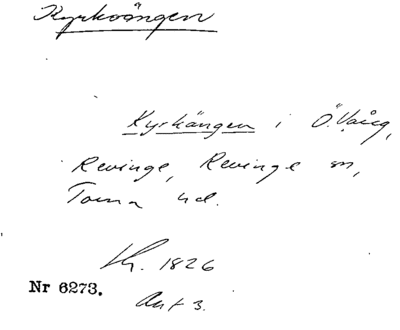 Kyrkoängen
Kyrkängen i Ö. Vång,
Revinge, Revinge sn,
Torna hd.
Kh. 1826
Nr 6273. Akt 3.